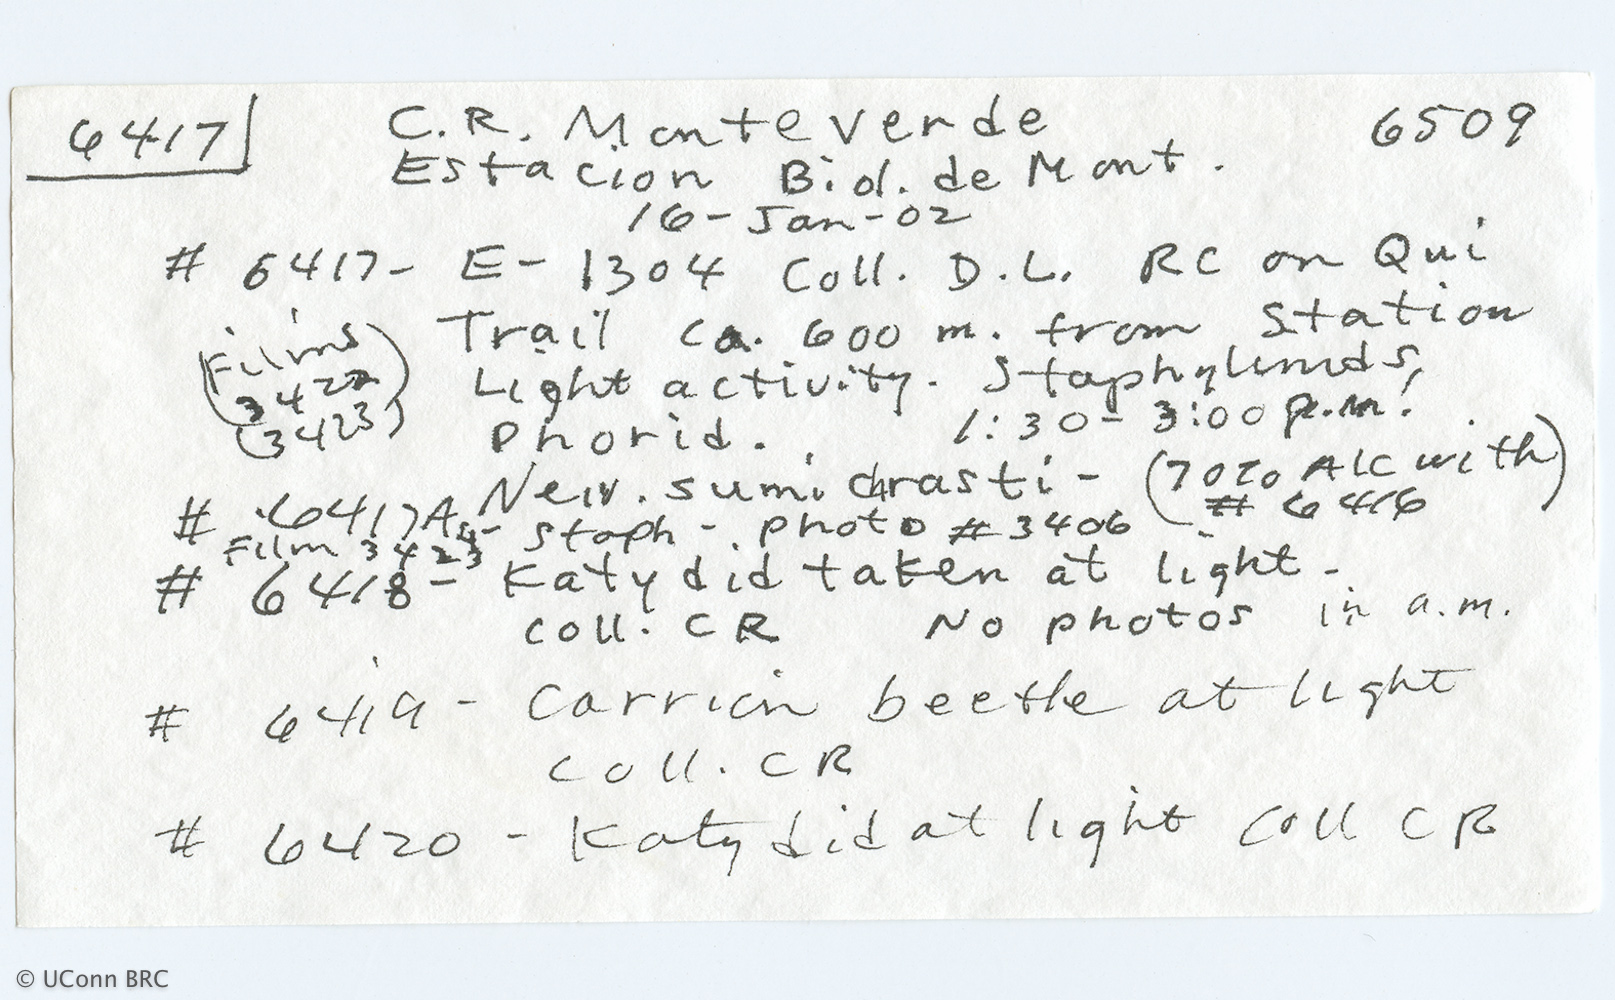 6417 C.R. Monteverde 6509
Estacion Biol. de Mont.
16-Jan-02
# 6417- E-1304 Coll. D.L. RC on Qui
(Films Trail ca. 600 m. from station
3422 Light activity. Staphylinids,
3423) Phorid. 1:30-3:00 p.m.
# 6417A - Neiv. sumichrasti - (70% Alc with # 6416)
Film 3423 Staph - photo # 3406
# 6418 - Katydid taken at light -
coll. CR No photos in a.m.
# 6419 - Carrion beetle at light
coll. CR
# 6420 - Katydid at light coll CR
© UConn BRC